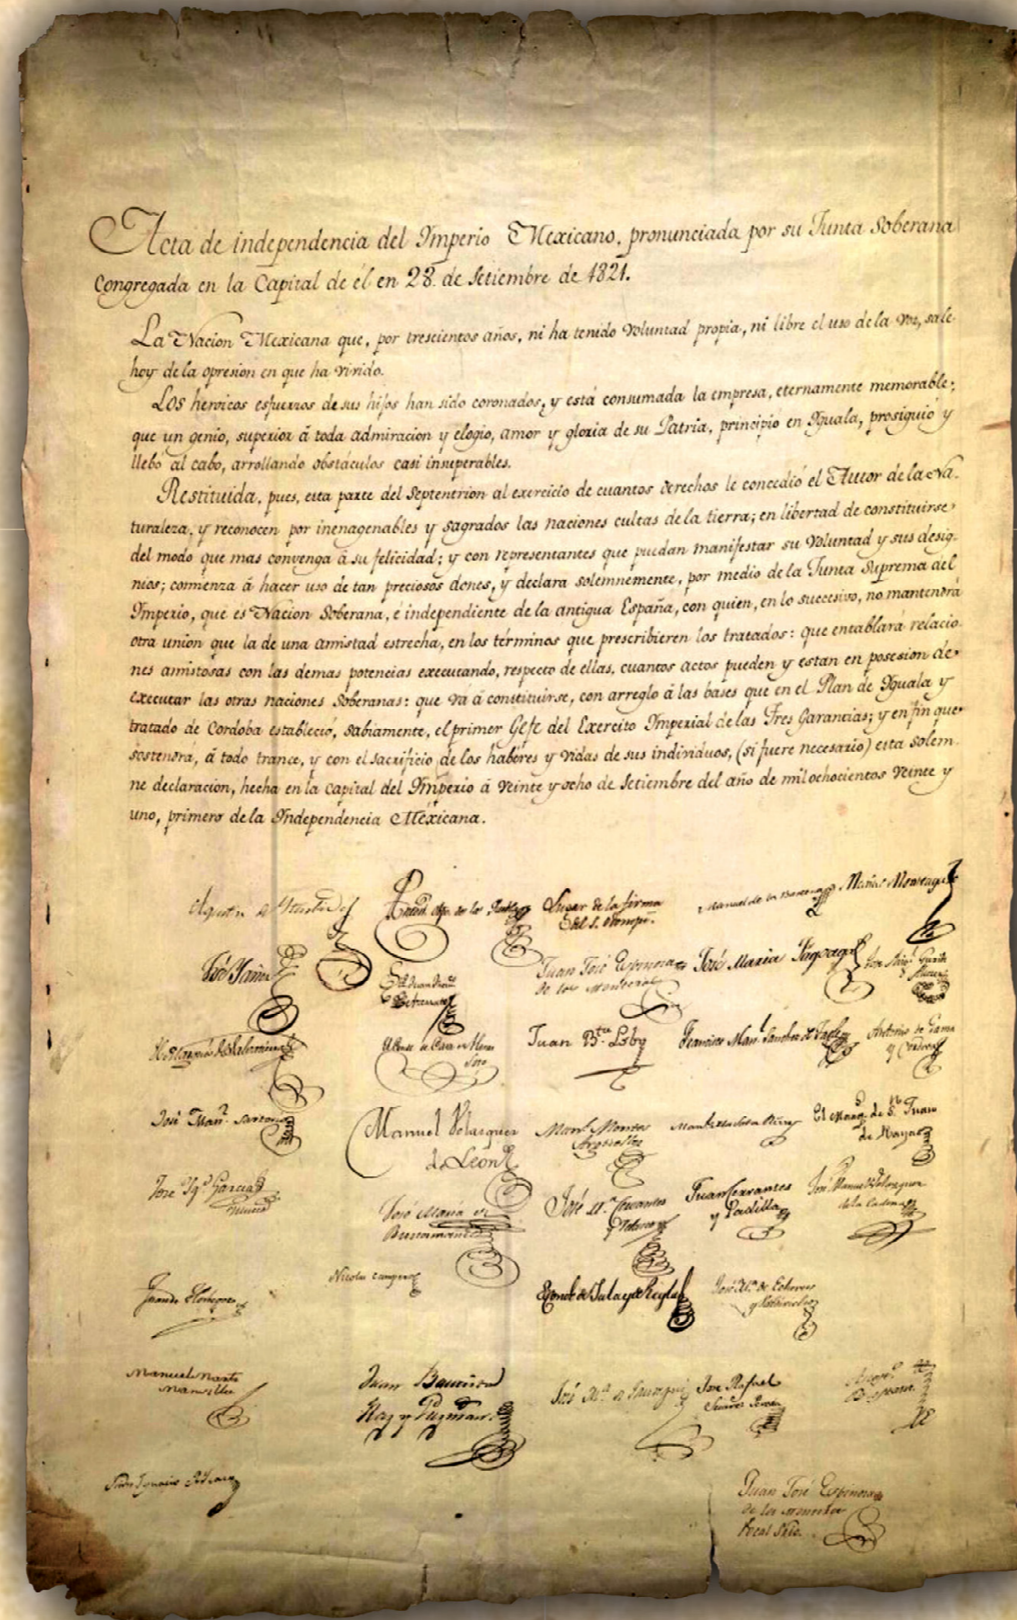 Acta de independencia del Imperio Mexicano, pronunciada por su Junta Soberana
congregada en la Capital de él en 28 de Setiembre de 1821.
La Nacion Mexicana que, por trescientos años, ni ha tenido voluntad propia, ni libre el uso de la voz, sale
hoy de la opresion en que ha vivido.
Los heroicos esfuerzos de sus hijos han sido coronados, y está consumada la empresa, eternamente memorable,
que un genio, superior á toda admiracion y elogio, amor y gloria de su Patria, principió en Iguala, prosiguió y
llebó al cabo, arrollando obstáculos casi insuperables.
Restituida, pues, esta parte del Septentrion al exercicio de cuantos derechos le concedió el Autor de la Na-
turaleza, y reconocen por inenagenables y sagrados las naciones cultas de la tierra; en libertad de constituirse
del modo que mas convenga á su felicidad; y con representantes que puedan manifestar su voluntad y sus desig-
nios; comienza á hacer uso de tan preciosos dones, y declara solemnemente, por medio de la Junta Suprema del
Imperio, que es Nacion Soberana, é independiente de la antigua España, con quien, en lo succesivo, no mantendrá
otra union que la de una amistad estrecha, en los términos que prescribieren los tratados: que entablará relacio-
nes amistosas con las demas potencias executando, respecto de ellas, cuantos actos pueden y estan en posesion de
executar las otras naciones Soberanas: que vá á constituirse, con arreglo á las bases que en el Plan de Iguala y
tratado de Cordoba estableció, sabiamente, el primer Gefe del Exercito Imperial de las Tres Garancias; y en fin que
sostendrá, á todo trance, y con el sacrificio de los haberes y vidas de sus individuos, (si fuere necesario) esta solem-
ne declaracion, hecha en la capital del Imperio á veinte y ocho de Setiembre del año de mil ochocientos veinte y
uno, primero de la Independencia Mexicana.
Lugar de la firma
Manuel de la
Matias Monteagudo
José Yañez
Juan José Espinosa
de los Monteros
José Maria Fagoaga
Juan Bta. Lobo
Francisco Man. Sanchez de Tagle
Antonio de Gama
y Cordova
José Man.
Manuel Velazquez
de Leon
Man. Montes
Arguelles
El Marq. de S. Juan
de Rayas
José Ig. Garcia
José Maria de
Bustamante
José M. Cervantes
y Velasco
Juan Cervantes
y Padilla
José Manuel Velazquez
de la Cadena
Juan de Horbegoso
Nicolas Campero
El Conde de Jala y de Regla
José M. de Echevers
y Valdivielso
Manuel Martz
Mansilla
Juan Bautista
Raz y Guzman
José M. de Jauregui
José Rafael
Suarez Pereda
Juan José Espinosa
de los Monteros
Vocal Srio.